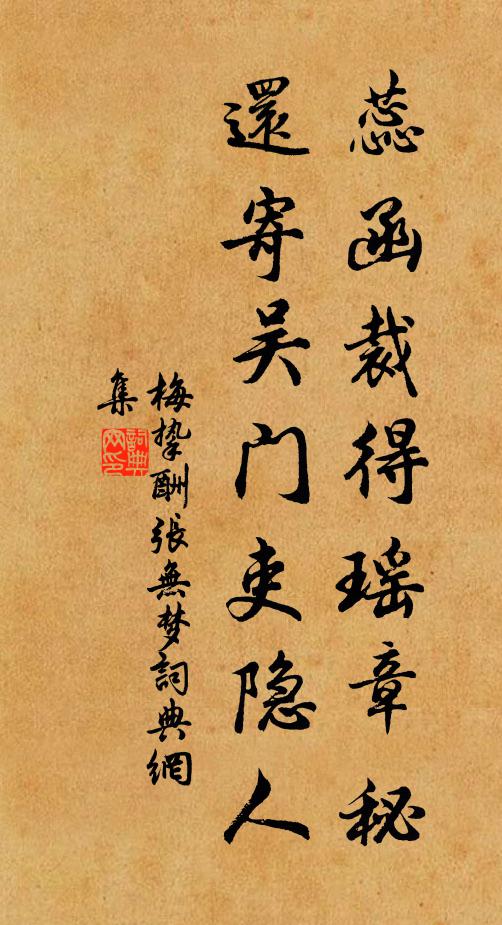 蕊函裁得瑶章秘
還寄吴门吏隐人
梅挚酬張無梦詞典網
集
詞典
网印